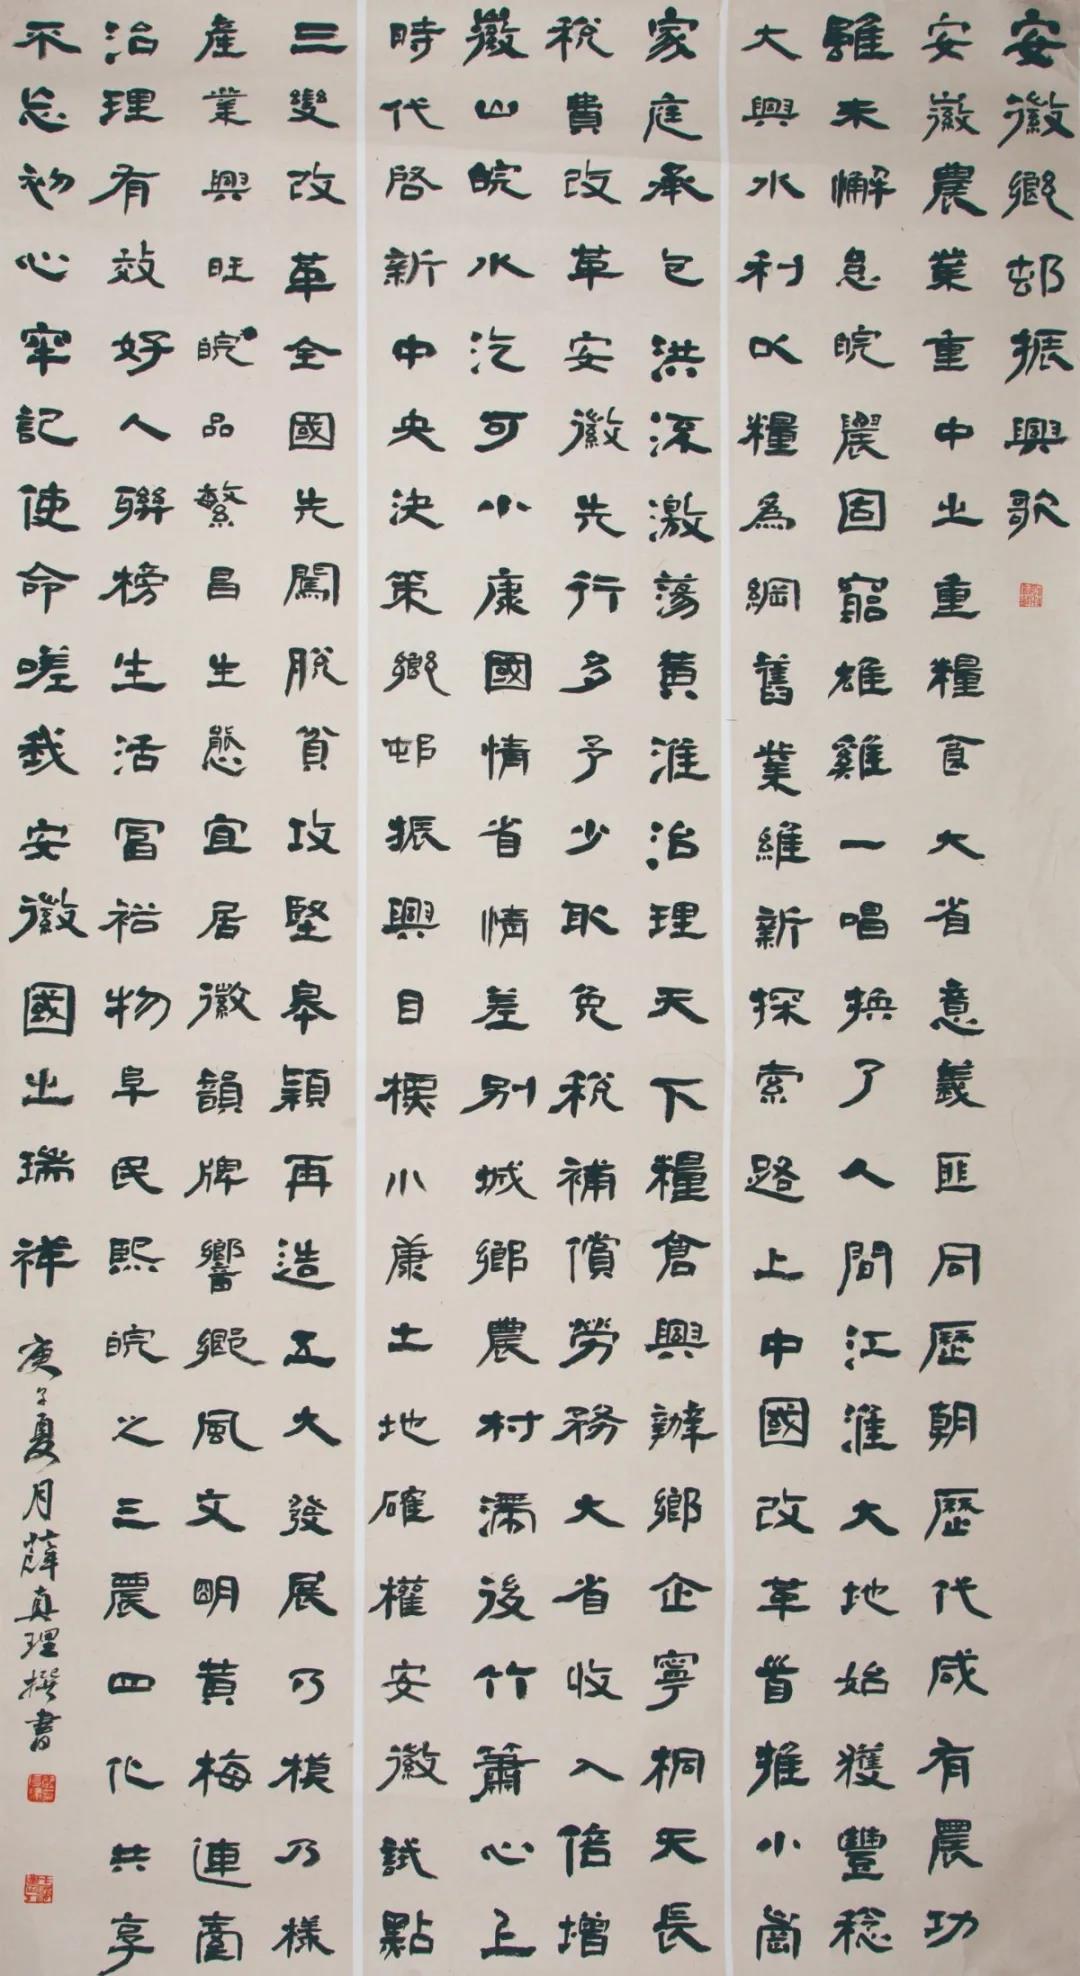 安徽鄉邨振興歌
安徽農業重中之重糧食大省意義匪同歷朝歷代咸有農功
雖未懈怠皖農固窮雄雞一唱換了人間江淮大地始獲豐稔
大興水利以糧為綱舊業維新探索路上中國改革首推小崗
家庭承包洪流激蕩黃淮治理天下糧倉興辦鄉企寧桐天長
稅費改革安徽先行多予少取免稅補償勞務大省收入倍增
徽山皖水汔可小康國情省情差別城鄉農村滯後竹簫心上
時代啓新中央決策鄉邨振興目標小康土地確權安徽試點
三變改革全國先闖脫貧攻堅皋穎再造五大發展乃模乃樣
產業興旺皖品繁昌生態宜居徽韻牌響鄉風文明黃梅連臺
治理有效好人聯榜生活富裕物阜民熙皖之三農四化共享
不忘初心牢記使命嗟我安徽國之瑞祥
庚子夏月薛真理撰書